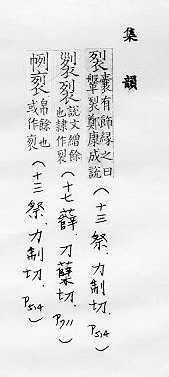 集韻
裂 囊有飾緣之曰鞶裂鄭康成說（十三祭．力制切．P514）
𠛱裂 說文繒餘也隸作裂（十七薛．力蘖切．P711）
㡂裂 帛餘也或作裂（十三祭．力制切．P514）